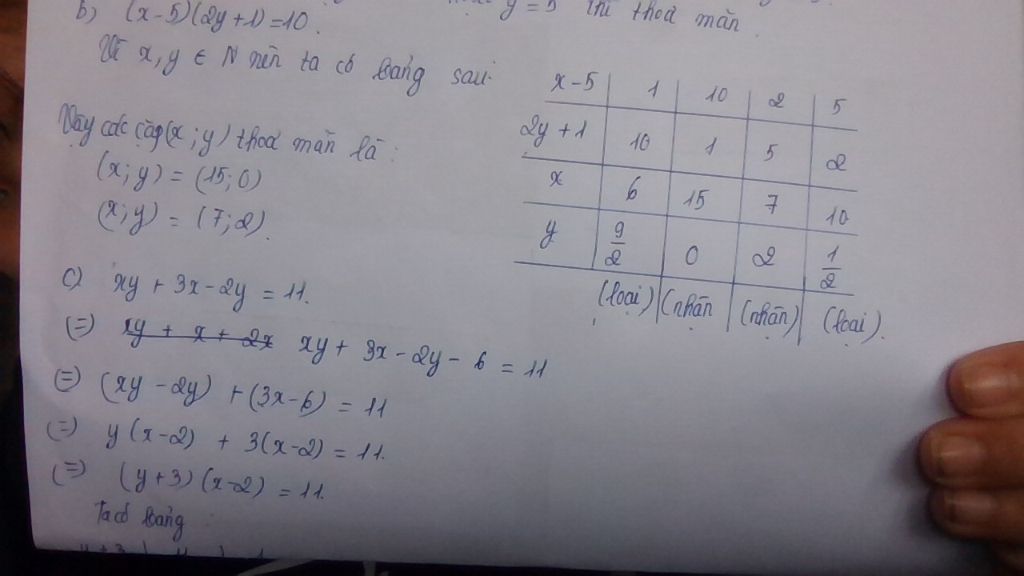 y = 5 thì thoả mãn.
b) (x-5)(2y+1)=10.
Vì x, y ∈ N nên ta có bảng sau:
x-5 | 1 | 10 | 2 | 5
2y+1 | 10 | 1 | 5 | 2
x | 6 | 15 | 7 | 10
y | 9/2 | 0 | 2 | 1/2
(loại) | (nhận | (nhận) | (loại).
Vậy các cặp (x; y) thoả mãn là:
(x; y) = (15; 0)
(x; y) = (7; 2).
c) xy + 3x - 2y = 11.
(=) xy + x + 2x xy + 3x - 2y - 6 = 11
(=) (xy - 2y) + (3x-6) = 11
(=) y(x-2) + 3(x-2) = 11.
(=) (y+3)(x-2) = 11.
Ta có bảng: